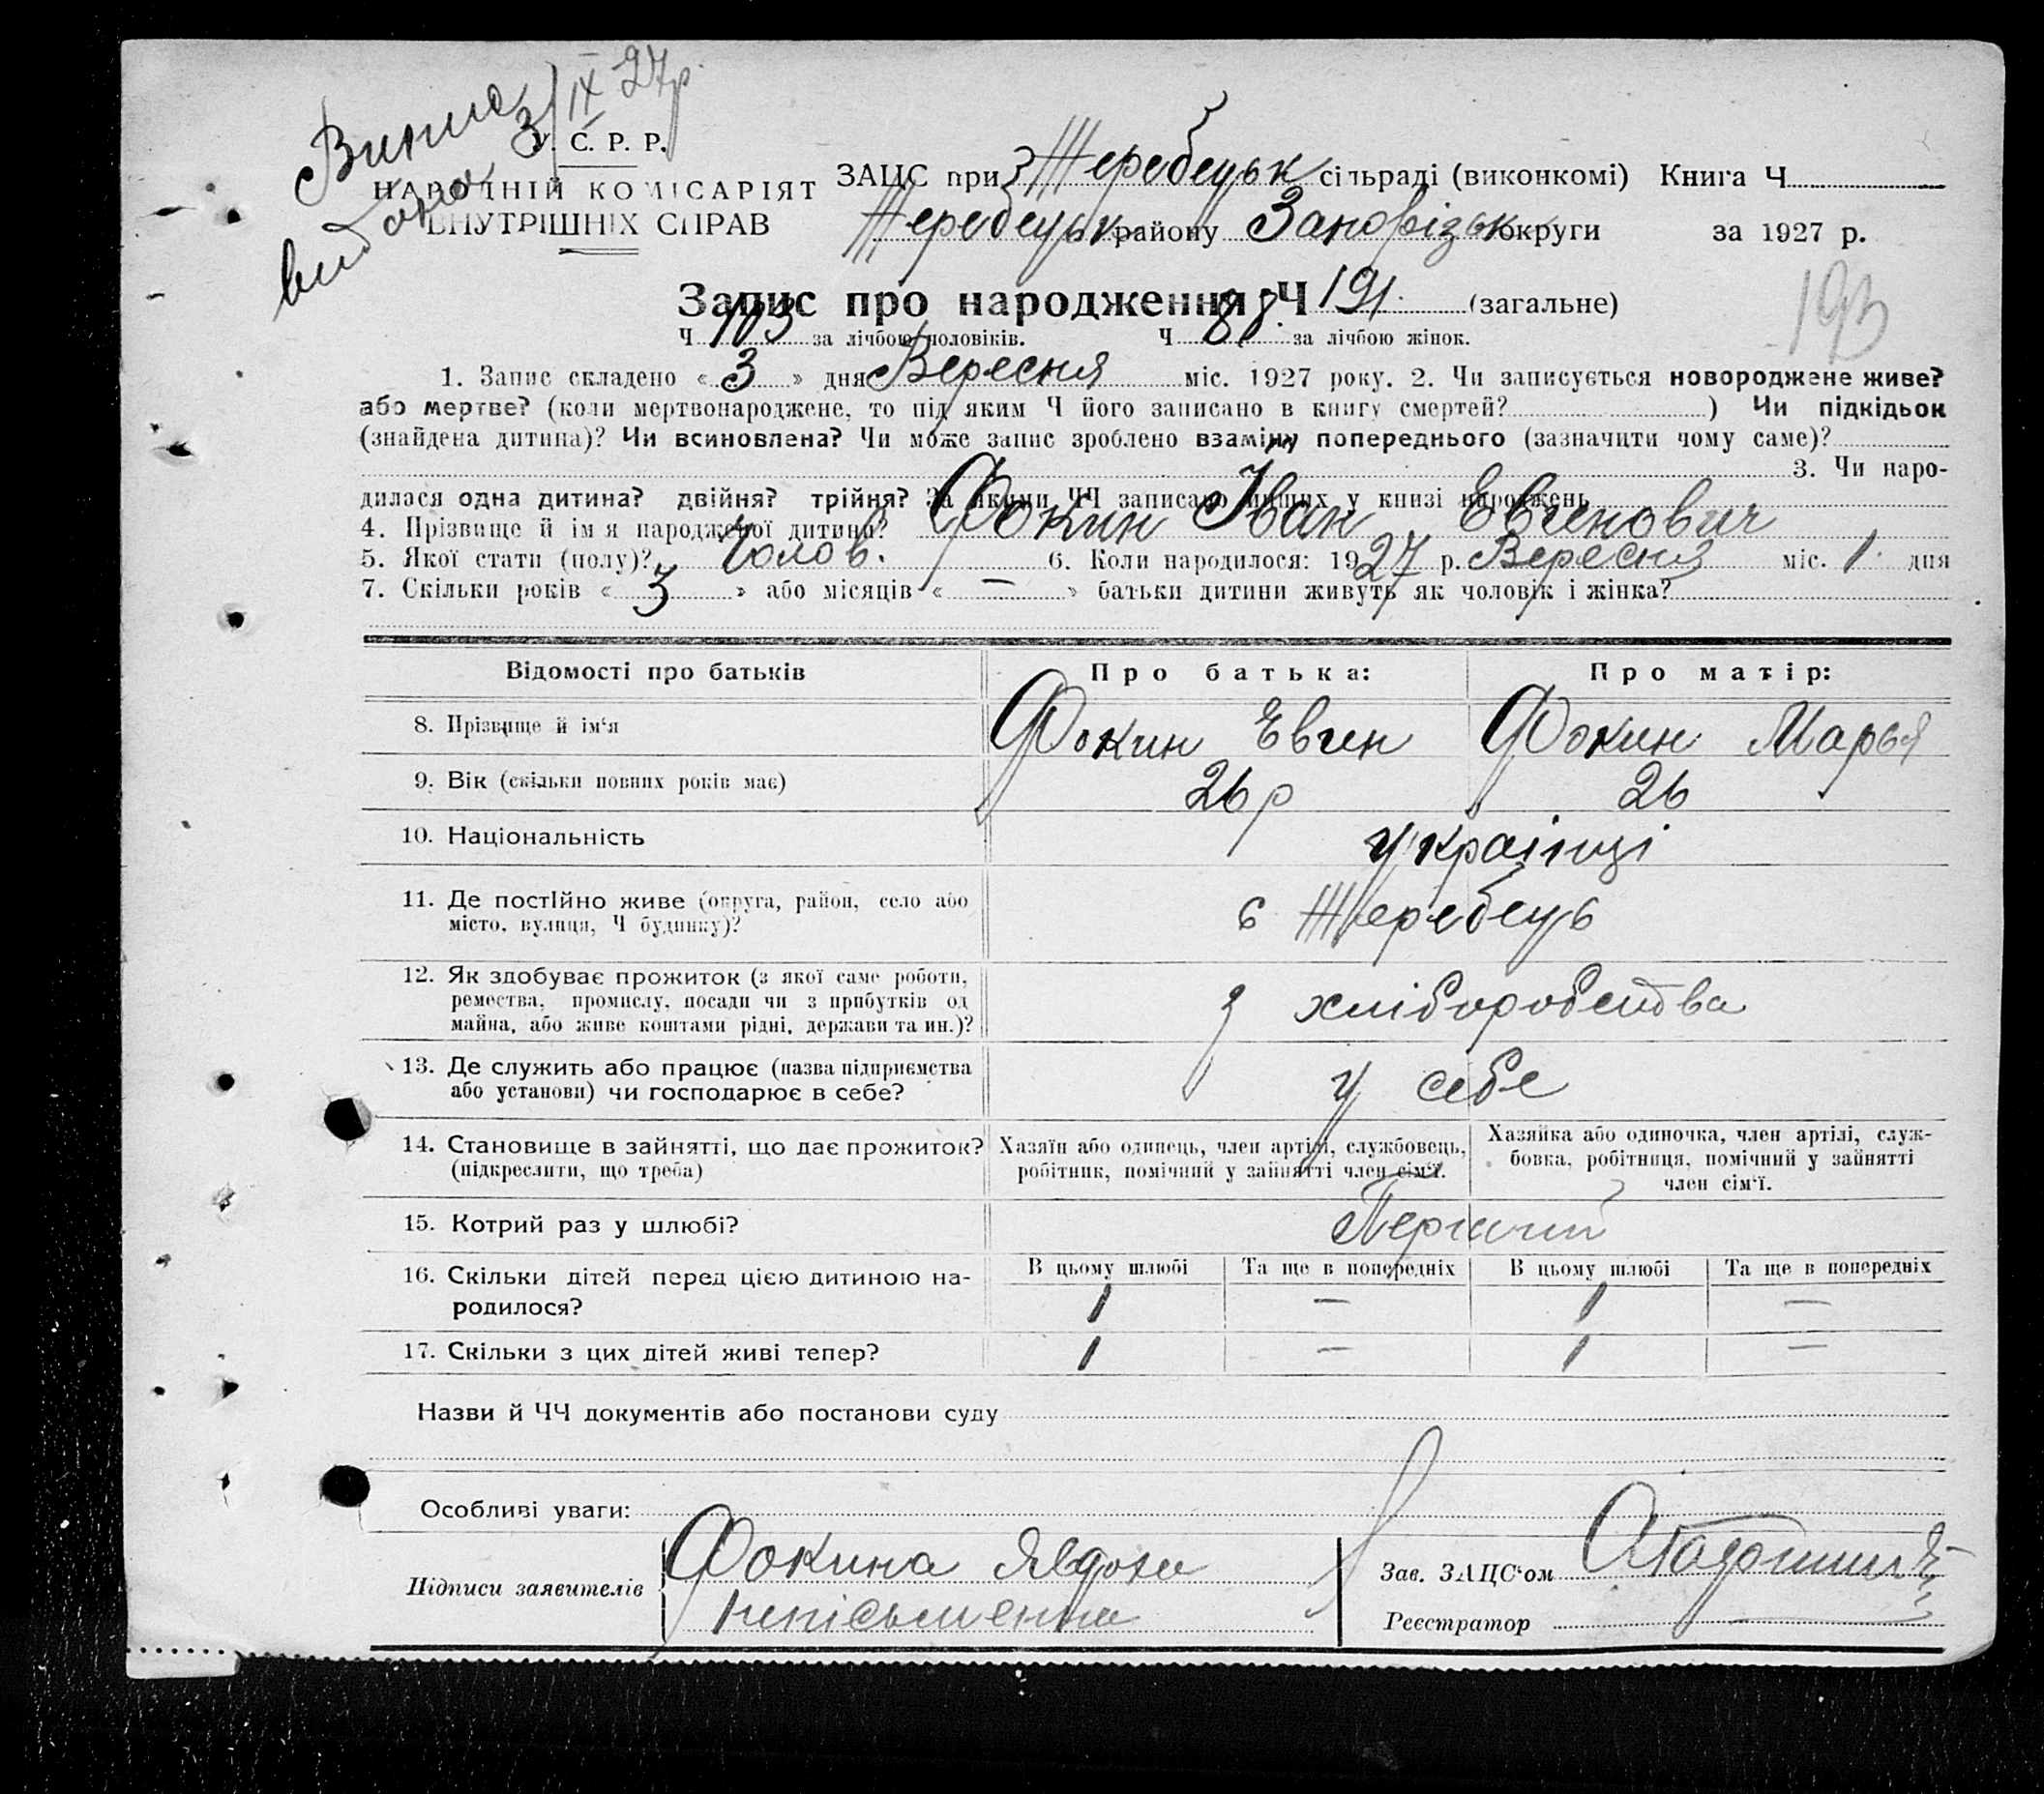 Виписа
видано 3/IX 27р.
У. С. Р. Р.
НАРОДНІЙ КОМІСАРІЯТ
ВНУТРІШНІХ СПРАВ
ЗАЦС при 3 Жеребецьк сільраді (виконкомі) Книга Ч
Жеребецьк району Запорізьк округи за 1927 р.
Запис про народження Ч 191 (загальне)
193
Ч 103 за лічбою чоловіків. Ч 88 за лічбою жінок.
1. Запис складено « 3 » дня Вересня міс. 1927 року. 2. Чи записується новороджене живе?
або мертве? (коли мертвонароджене, то під яким Ч його записано в книгу смертей? ) Чи підкідьок
(знайдена дитина)? Чи всиновлена? Чи може запис зроблено взаміну попереднього (зазначити чому саме)?
3. Чи наро-
дилася одна дитина? двійня? трійня? За якими ЧЧ записано инших у книзі народжень
4. Прізвище й ім я народженої дитини? Фокин Іван Евгенович
5. Якої стати (полу)? Чолов. 6. Коли народилося: 1927 р. Вересня міс. 1 дня
7. Скільки років « 3 » або місяців « — » батьки дитини живуть як чоловік і жінка?
Відомості про батьків Про батька: Про матір:
8. Прізвище й ім‘я Фокин Евген Фокин Марья
9. Вік (скільки повних років має) 26 р 26
10. Національність українці
11. Де постійно живе (округа, район, село або
місто, вулиця, Ч будинку)? с Жеребець
12. Як здобуває прожиток (з якої саме роботи,
ремества, промислу, посади чи з прибутків од
майна, або живе коштами рідні, держави та ин.)? з хліборобства
13. Де служить або працює (назва підприємства
або установи) чи господарює в себе? у себе
14. Становище в зайнятті, що дає прожиток?
(підкреслити, що треба)
Хазяїн або одинець, член артілі, службовець,
робітник, помічний у зайнятті член сім‘ї.
Хазяйка або одиночка, член артілі, служ-
бовка, робітниця, помічний у зайнятті
член сім‘ї.
15. Котрий раз у шлюбі? Перший
16. Скільки дітей перед цією дитиною на-
родилося?
В цьому шлюбі Та ще в попередніх В цьому шлюбі Та ще в попередніх
1 — 1 —
17. Скільки з цих дітей живі тепер? 1 — 1 —
Назви й ЧЧ документів або постанови суду
Особливі уваги:
Підписи заявителів Фокина Явдоха
непісьменна
Зав. ЗАЦС‘ом
Реєстратор